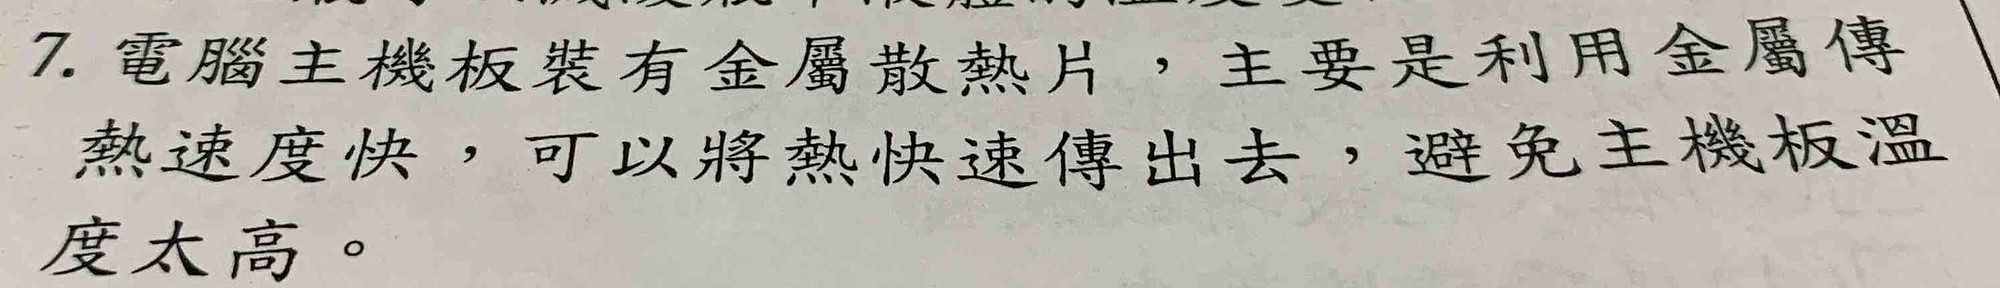 7. 電腦主機板裝有金屬散熱片，主要是利用金屬傳
熱速度快，可以將熱快速傳出去，避免主機板溫
度太高。